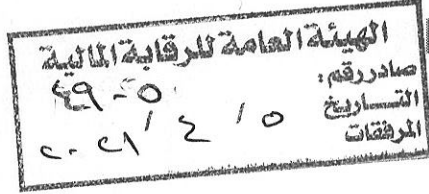 الهيئة العامة للرقابة المالية
صادر رقم: ٤٩٠٥
التاريخ ٥ / ٤ / ٢٠٢١
المرفقات